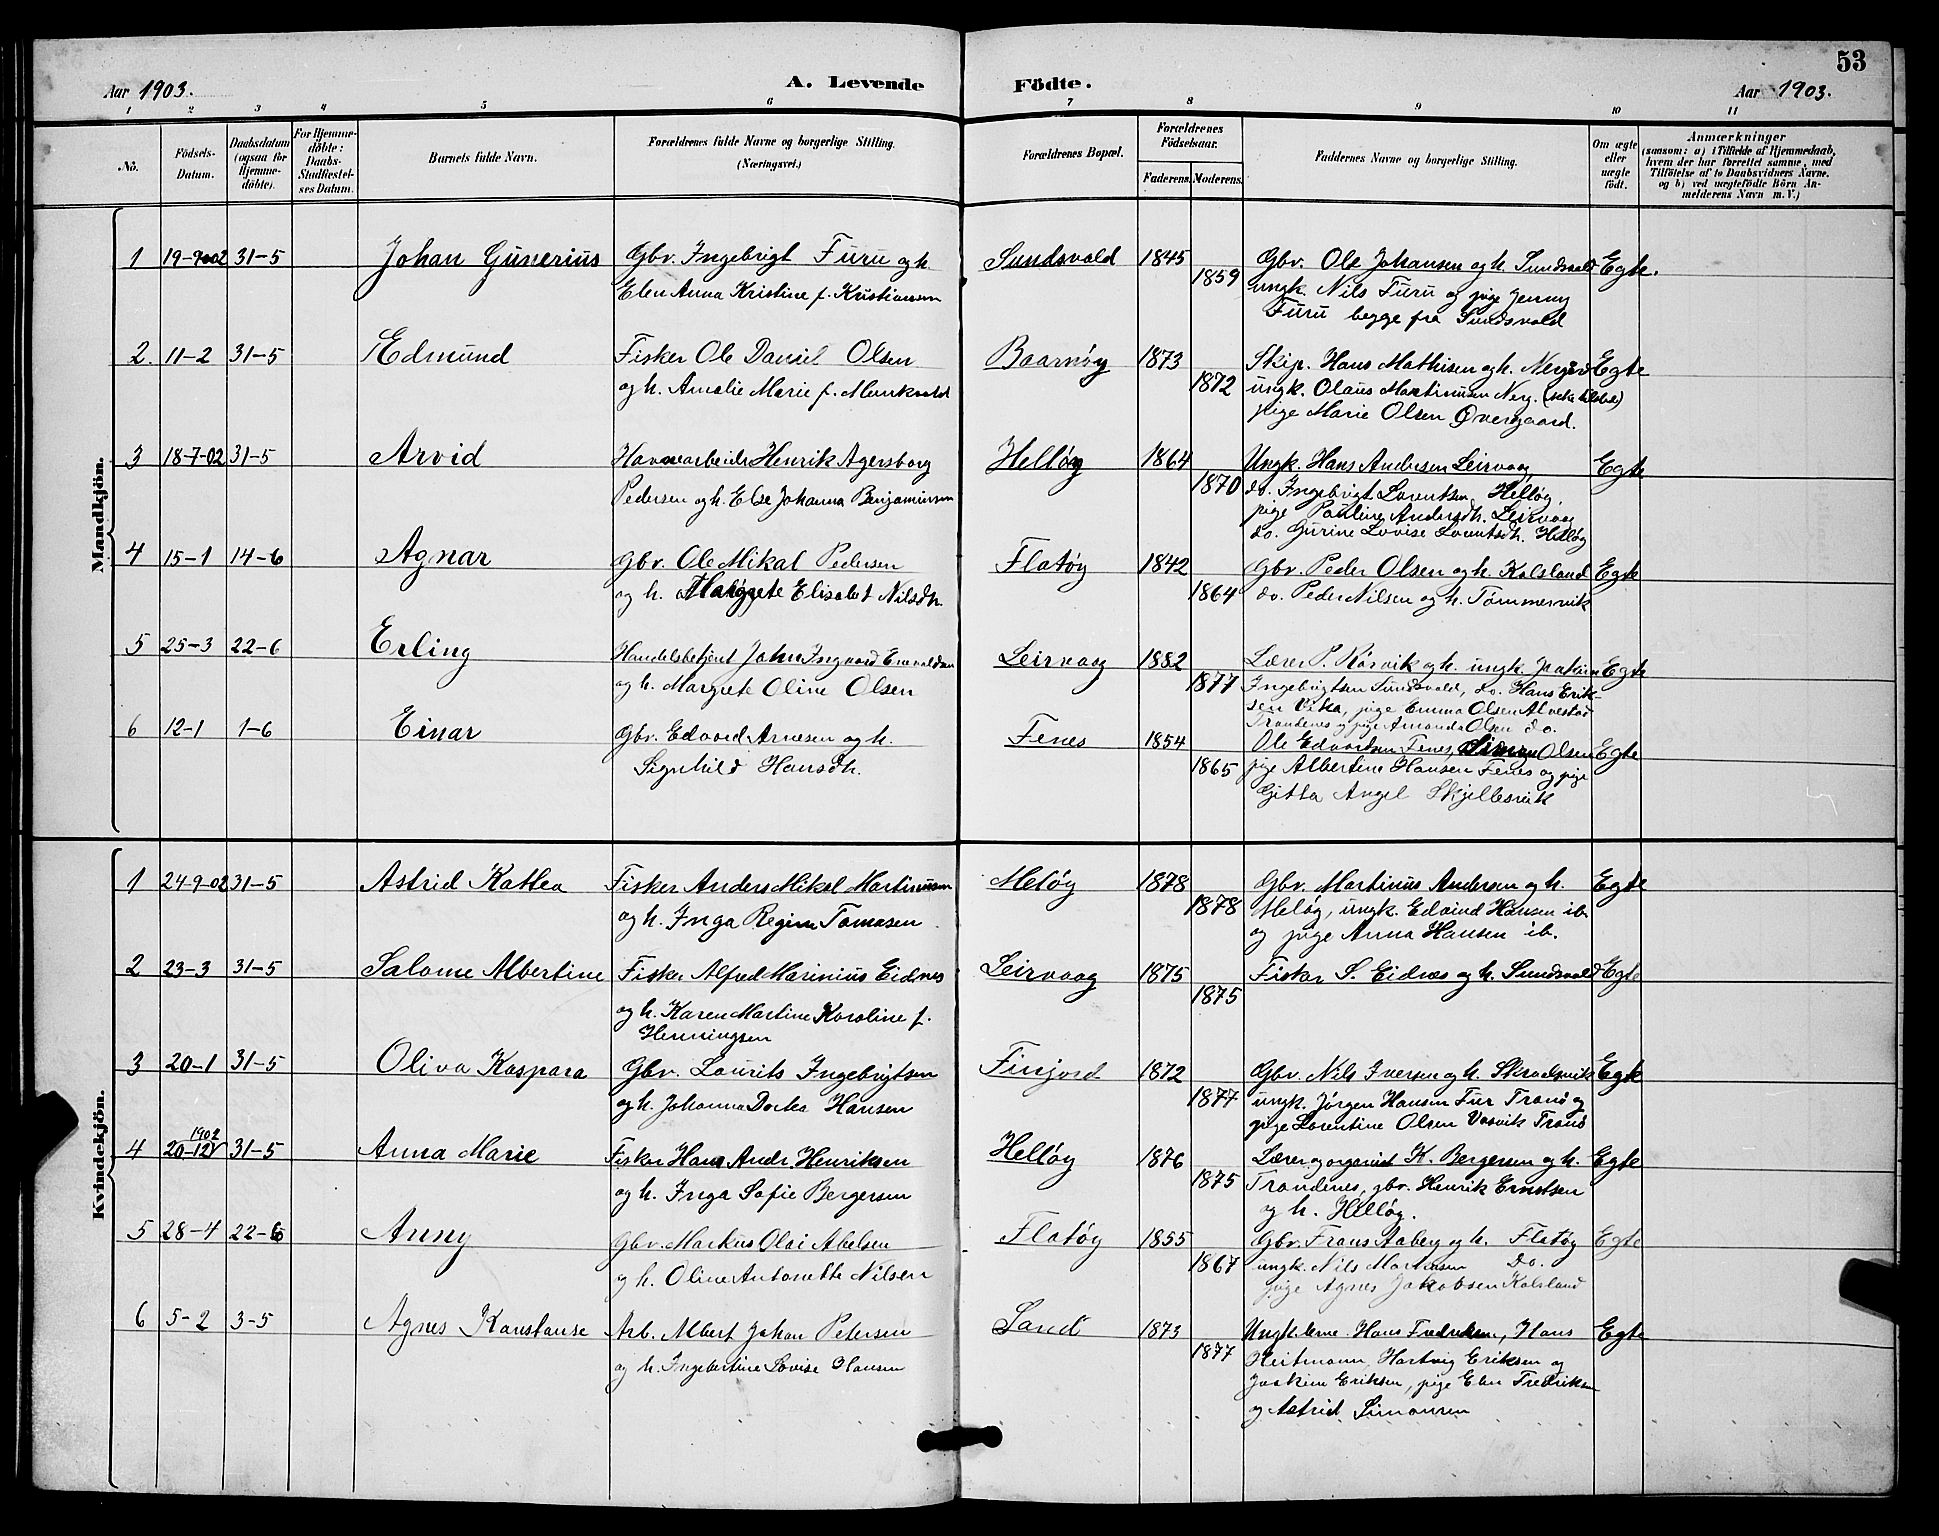 53
Aar 1903.
A. Levende
Födte.
Aar 1903.
1 2 3 4 5 6 7 8 9 10 11
No.
Födsels-Datum.
Daabsdatum (ogsaa for Hjemmedöbte).
For Hjemmedöbte: Daabs-Stadfæstelses Datum.
Barnets fulde Navn.
Forældrenes fulde Navne og borgerlige Stilling. (Næringsvei.)
Forældrenes Bopæl.
Forældrenes Födselsaar.
Faderens. Moderens.
Faddernes Navne og borgerlige Stilling.
Om ægte eller uægte födt.
Anmærkninger
(saasom: a) i Tilfælde af Hjemmedaab, hvem der har forrettet samme, med Tilföielse af to Daabsvidners Navne. og b) ved uægtefödte Börn Anmelderens Navn m. V.)
Mandkjön.
1 19-9-02 31-5 Johan Gunerius Gbr. Ingebrigt Furu og h. Sundsvold 1845 Gbr. Ole Johansen og h. Sundsvold Egte.
Elen Anna Kristine f. Kristiansen 1859 ungk. Nils Furu og pige Jenny
Furu begge fra Sundsvold
2. 11-2 31-5 Edmund Fisker Ole Daniel Olsen Baarnøy 1873 Skip. Hans Mathisen og h. Egte
og h. Amalie Marie f. Munkvold 1872 ungk. Olaus Martinusen Nerg.
pige Marie Olsen Overgaard.
3 18-7-02 31-5 Arvid Havnearbeider Henrik Agersborg Helløy 1864 Ungk. Hans Andersen Leirvaag Egte
Pedersen og h. Else Johanna Benjaminsen 1870 do. Ingebrigt Lorentsen Helløy,
pige Pauline Andersdh. Leirvaag
do. Gurine Lovise Lorentsdh. Helløy
4 15-1 14-6 Agnar Gbr. Ole Mikal Pedersen Flatøy 1842 Gbr. Peder Olsen og h. Kolsland Egte
og h. Margrete Elisabet Nilsdh. 1864 do. Peder Nilsen og h. Tømmervik
5 25-3 22-6 Erling Handelsbetjent Johan Ingvard Leirvaag 1882 Lærer P. Rørvik og h. ungk. Egte
og h. Margrete Oline Olsen 1877 Ingebrigtsen Sundsvold, do. Hans Erik-
sen Vika, pige Emma Olsen Alvestad
Trondenes og pige Amanda Olsen do.
6 12-1 1-6 Einar Gbr. Edvard Arnesen og h. Fenes 1854 Ole Edvardsen Fenes, Simon Olsen Egte
Signhild Hansdh. 1865 pige Albertine Hansen Fenes og pige
Gitta Angel Skjellesvik
Kvindekjön.
1 24-9-02 31-5 Astrid Kathea Fisker Anders Mikal Martinusen Meløy 1878 Gbr. Martinus Andersen og h. Egte
og h. Inga Regine Tomasen 1878 Meløy, ungk. Edvind Hansen ib.
og pige Anna Hansen ib.
2 23-3 31-5 Salome Albertine Fisker Alfred Marinius Eidnes Leirvaag 1875 Fisker S. Eidnes og h. Sundsvold Egte
og h. Karen Martine Karoline f. 1875
Henningsen
3 20-1 31-5 Oliva Kaspara Gbr. Laurits Ingebrigtsen Finjord 1872 Gbr. Nils Iversen og h. Skrolsvik Egte
og h. Johanna Dorka Hansen 1877 ungk. Jørgen Hansen Fur Tranø og
pige Lorentine Olsen Vasvik Tranø
4 1902 20-12 31-5 Anna Marie Fisker Hans Andr. Henriksen Helløy 1876 Lærer og organist K. Bergersen og h. Egte
og h. Inga Sofie Bergersen 1875 Trondenes, gbr. Henrik Erntsen
og h. Helløy.
5 28-4 22-6 Anny Gbr. Markus Olai Abelsen Flatøy 1855 Gbr. Frans Aaberg og h. Flatøy Egte
og h. Oline Antonette Nilsen 1867 ungk. Nils Martinsen do.
pige Agnes Jakobsen Kolsland
6 5-2 3-5 Agnes Konstanse Arb. Albert Johan Petersen Sand 1873 Ungkarlene Hans Fredriksen, Hans Egte
og h. Ingebertine Lovise Hansen 1877 Heitmann, Hartvig Eriksen og
Joakim Eriksen, pige Elen Fredriksen
og Astrid Simonsen